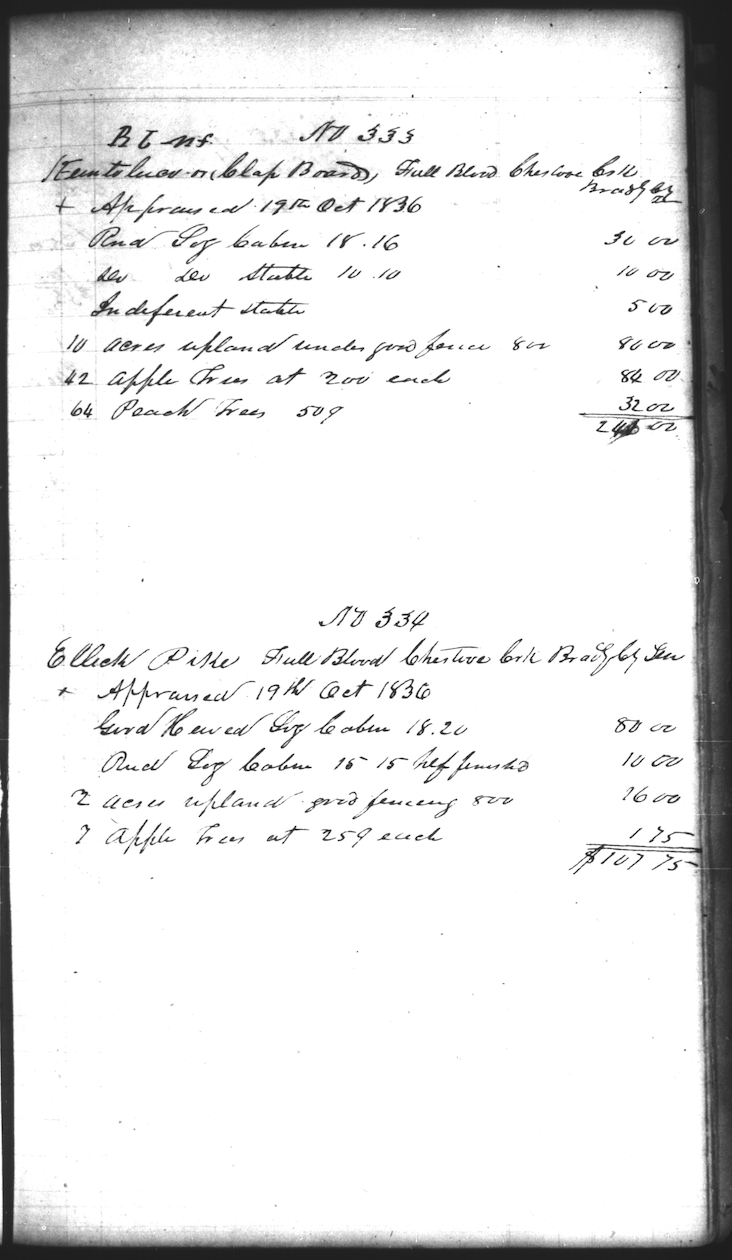 No 333
or (Clap Board), Full Blood Chestooe Crk
Bradly Cy
+ Appraised 19th Oct 1836
Rnd Log Cabin 18.16 30 00
Do Do Stable 10.10 10 00
Indeferent stable 5 00
10 acres upland under good fence 800 80 00
42 Apple Trees at 200 each 84 00
64 Peach Trees 50¢ 32 00
00
No 334
Elleck Pike Full Blood Chestooe Crk Bradly Cy Ten
+ Appraised 19th Oct 1836
Good Hewed Log Cabin 18.20 80 00
Rnd Log Cabin 15 15 hlf finishd 10 00
2 acres upland good fencing 800 16 00
7 Apple Trees at 25¢ each 1 75
$107 75